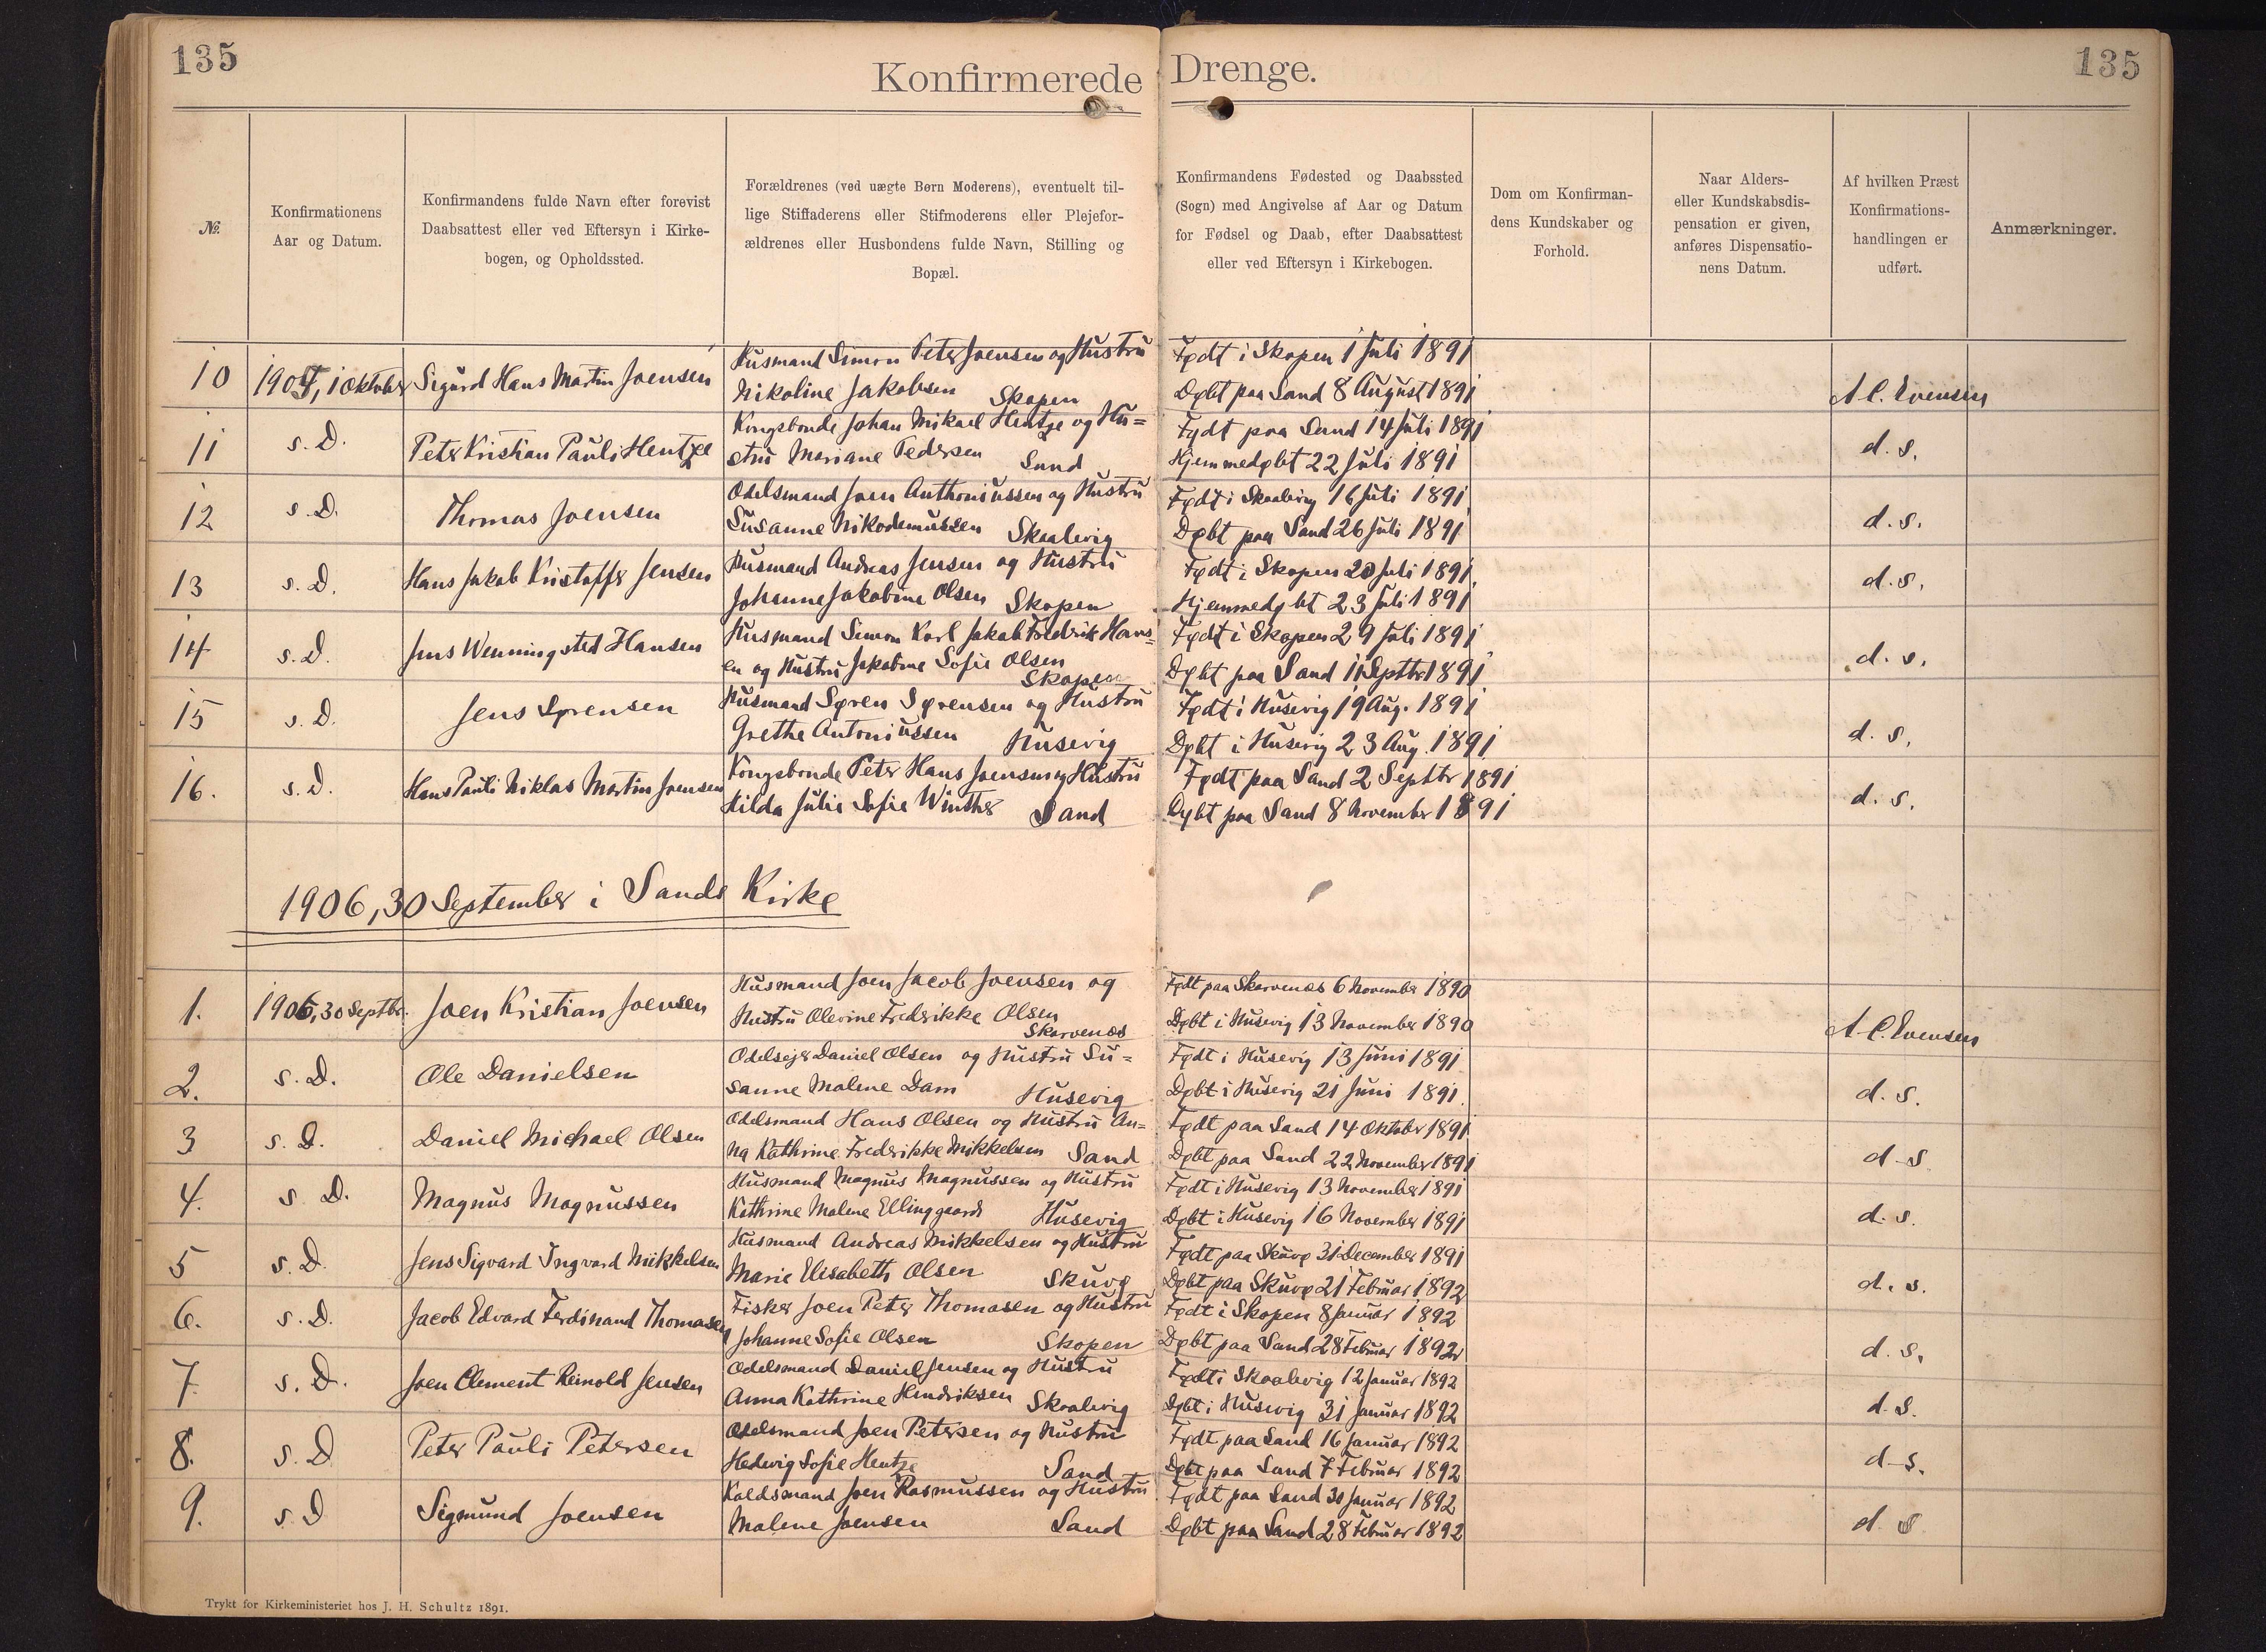 135
Konfirmerede Drenge.
135
№
Konfirmationens
Aar og Datum.
Konfirmandens fulde Navn efter forevist
Daabsattest eller ved Eftersyn i Kirke-
bogen, og Opholdssted.
Forældrenes (ved uægte Børn Moderens), eventuelt til-
lige Stiffaderens eller Stifmoderens eller Plejefor-
ældrenes eller Husbondens fulde Navn, Stilling og
Bopæl.
Konfirmandens Fødested og Daabssted
(Sogn) med Angivelse af Aar og Datum
for Fødsel og Daab, efter Daabsattest
eller ved Eftersyn i Kirkebogen.
Dom om Konfirman-
dens Kundskaber og
Forhold.
Naar Alders-
eller Kundskabsdis-
pensation er given,
anføres Dispensatio-
nens Datum.
Af hvilken Præst
Konfirmations-
handlingen er
udført.
Anmærkninger.
10 1905, 1 Oktober Sigurd Hans Martin Joensen
Husmand Simon Peter Joensen og Hustru
Nikoline Jakobsen Skopen
Født i Skopen 1 Juli 1891
Døbt paa Sand 8 August 1891
A C. Evensen
11 s. D. Peter Kristian Pauli Hentze
Kongsbonde Johan Mikael Hentze og Hu=
stru Mariane Pedersen Sand
Født paa Sand 14 Juli 1891
Hjemmedøbt 22 Juli 1891
d. s.
12 s. D. Thomas Joensen
Odelsmand Joen Anthoniussen og Hustru
Susanne Nikodemussen Skaalevig
Født i Skaalevig 16 Juli 1891
Døbt paa Sand 26 Juli 1891
d. s.
13 s. D. Hans Jakob Kristoffer Jensen
Husmand Andreas Jensen og Hustru
Johanne Jakobine Olsen Skopen
Født i Skopen 20 Juli 1891
Hjemmedøbt 23 Juli 1891
d. s.
14 s. D. Jens Wenningsted Hansen
Husmand Simon Karl Jakob Fredrik Hans=
en og Hustru Jakobine Sofie Olsen
Skopen
Født i Skopen 29 Juli 1891
Døbt paa Sand 11 Septbr 1891
d. s.
15 s. D. Jens Sørensen
Husmand Søren Sørensen og Hustru
Grethe Antoniussen Husevig
Født i Husevig 19 Aug. 1891
Døbt i Husevig 23 Aug. 1891
d. s.
16. s. D. Hans Pauli Niklas Martin Joensen
Kongsbonde Peter Hans Joensen og Hustru
Hilda Julie Sofie Winther Sand
Født paa Sand 2 Septbr 1891
Døbt paa Sand 8 November 1891
d. s.
1906, 30 September i Sands Kirke
1. 1906, 30 Septbr. Joen Kristian Joensen
Husmand Joen Jacob Joensen og
Hustru Olevine Fredrikke Olsen
Skarvenæs
Født paa Skarvenæs 6 November 1890
Døbt i Husevig 13 November 1890
A. C. Evensen
2. s. D. Ole Danielsen
Odelsejer Daniel Olsen og Hustru Su=
sanne Malene Dam Husevig
Født i Husevig 13 Juni 1891
Døbt i Husevig 21 Juni 1891.
d. s.
3 s. D. Daniel Michael Olsen
Odelsmand Hans Olsen og Hustru An=
na Kathrine Frederikke Mikkelsen Sand
Født paa Sand 14 Oktober 1891
Døbt paa Sand 22 November 1891
d s
4. s D. Magnus Magnussen
Husmand Magnus Magnussen og Hustru
Kathrine Malene Ellinggaard Husevig
Født i Husevig 13 November 1891
Døbt i Husevig 16 November 1891
d. s.
5 s. D. Jens Sigvard Ingvard Mikkelsen
Husmand Andreas Mikkelsen og Hustru
Marie Elisabeth Olsen Skuvø
Født paa Skuvø 31 December 1891
Døbt paa Skuvø 21 Februar 1892
d. s.
6. s. D. Jacob Edvard Ferdinand Thomasen
Fisker Joen Peter Thomasen og Hustru
Johanne Sofie Olsen Skopen
Født i Skopen 8 Januar 1892
Døbt paa Sand 28 Februar 1892
d. s.
7 s. D. Joen Clement Reinold Jensen
Odelsmand Daniel Jensen og Hustru
Anna Kathrine Hendriksen Skaalevig
Født i Skaalevig 12 Januar 1892
Døbt i Husevig 31 Januar 1892
d. s.
8. s. D Peter Pauli Petersen
Odelsmand Joen Petersen og Hustru
Hedevig Sofie Hentze Sand
Født paa Sand 16 Januar 1892
Døbt paa Sand 7 Februar 1892
d s.
9. s. D Sigmund Joensen
Koldsmand Joen Rasmussen og Hustru
Malene Joensen Sand
Født paa Sand 31 Januar 1892
Døbt paa Sand 28 Februar 1892
d. s
Trykt for Kirkeministeriet hos J. H. Schultz 1891.